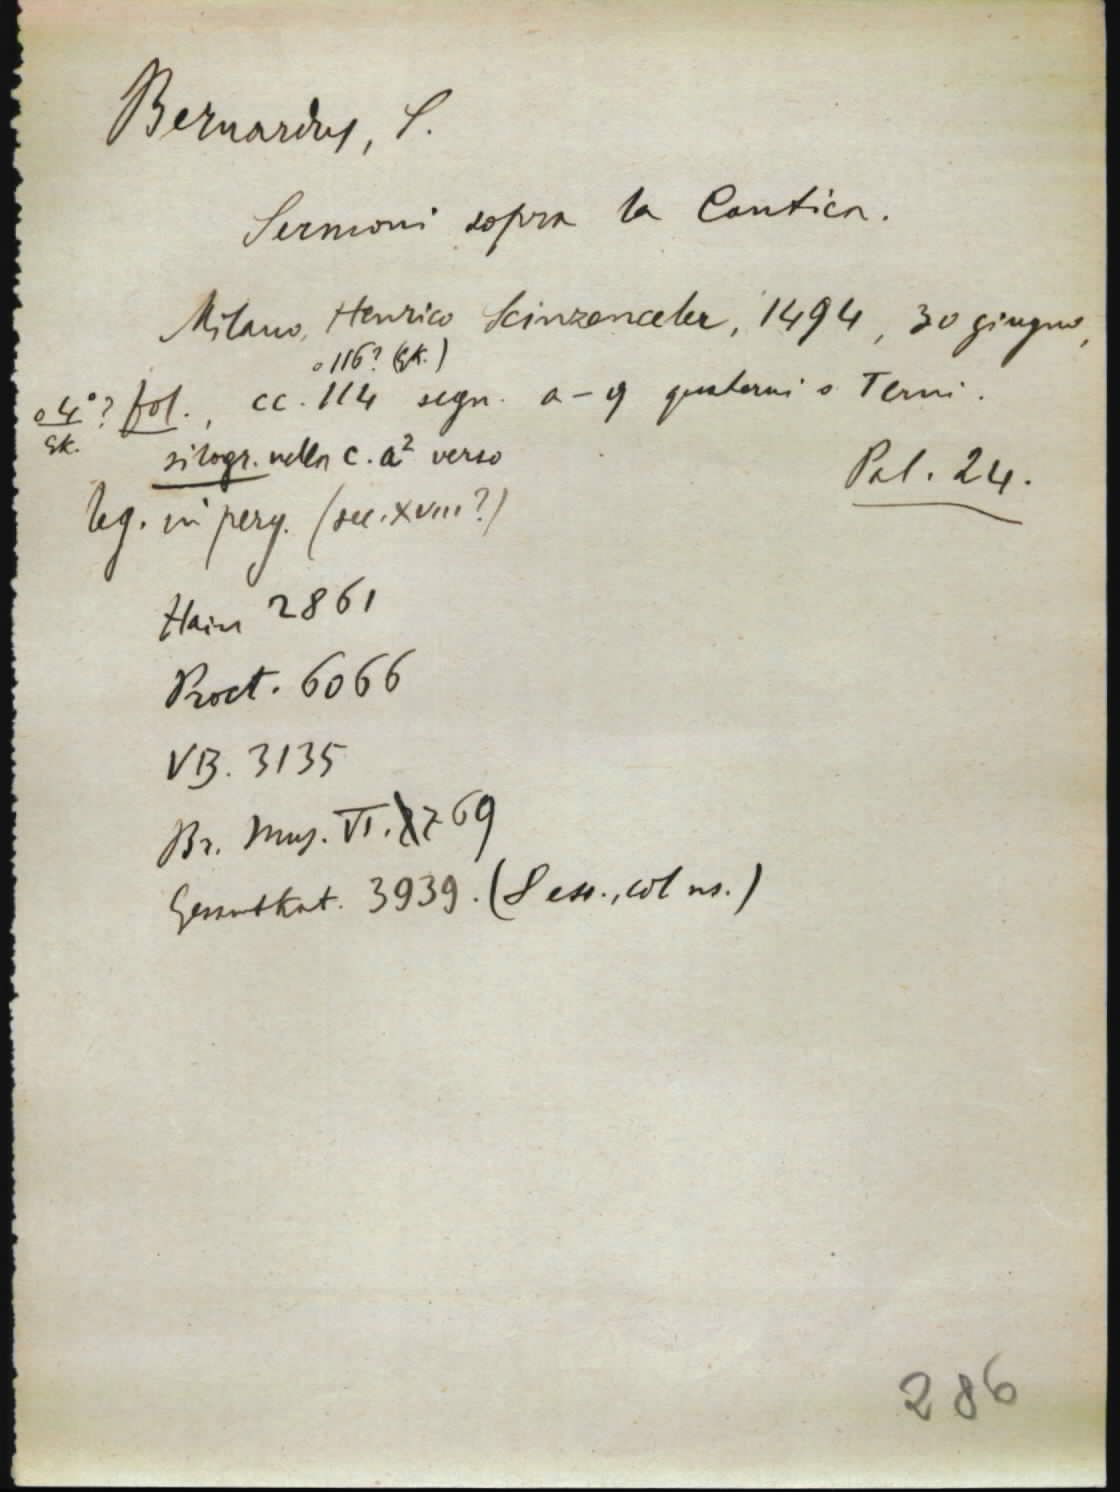 Bernardus, S.
Sermoni sopra la Cantica.
Milano, Henrico Scinzenceler, 1494, 30 giugno,
o 116? (GK.)
o 4°? fol., cc. 114 segn. a-q quaterni o Terni.
GK.
silogr. nella c. a² verso
Pal. 24.
leg. in perg. (sec. XVIII?)
Hain 2861
Proct. 6066
VB. 3135
Br. Mus. VI. 769
Gesamtkat. 3939. (8 es., col ns.)
286